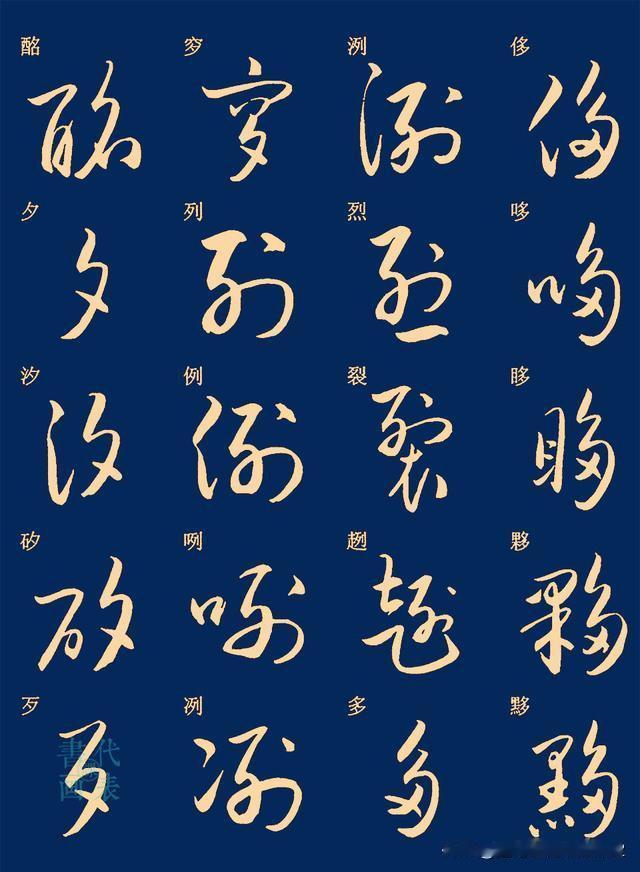 酩 穸 洌 侈
夕 列 烈 哆
汐 例 裂 眵
矽 咧 趔 夥
歹 冽 多 黟
書画代表